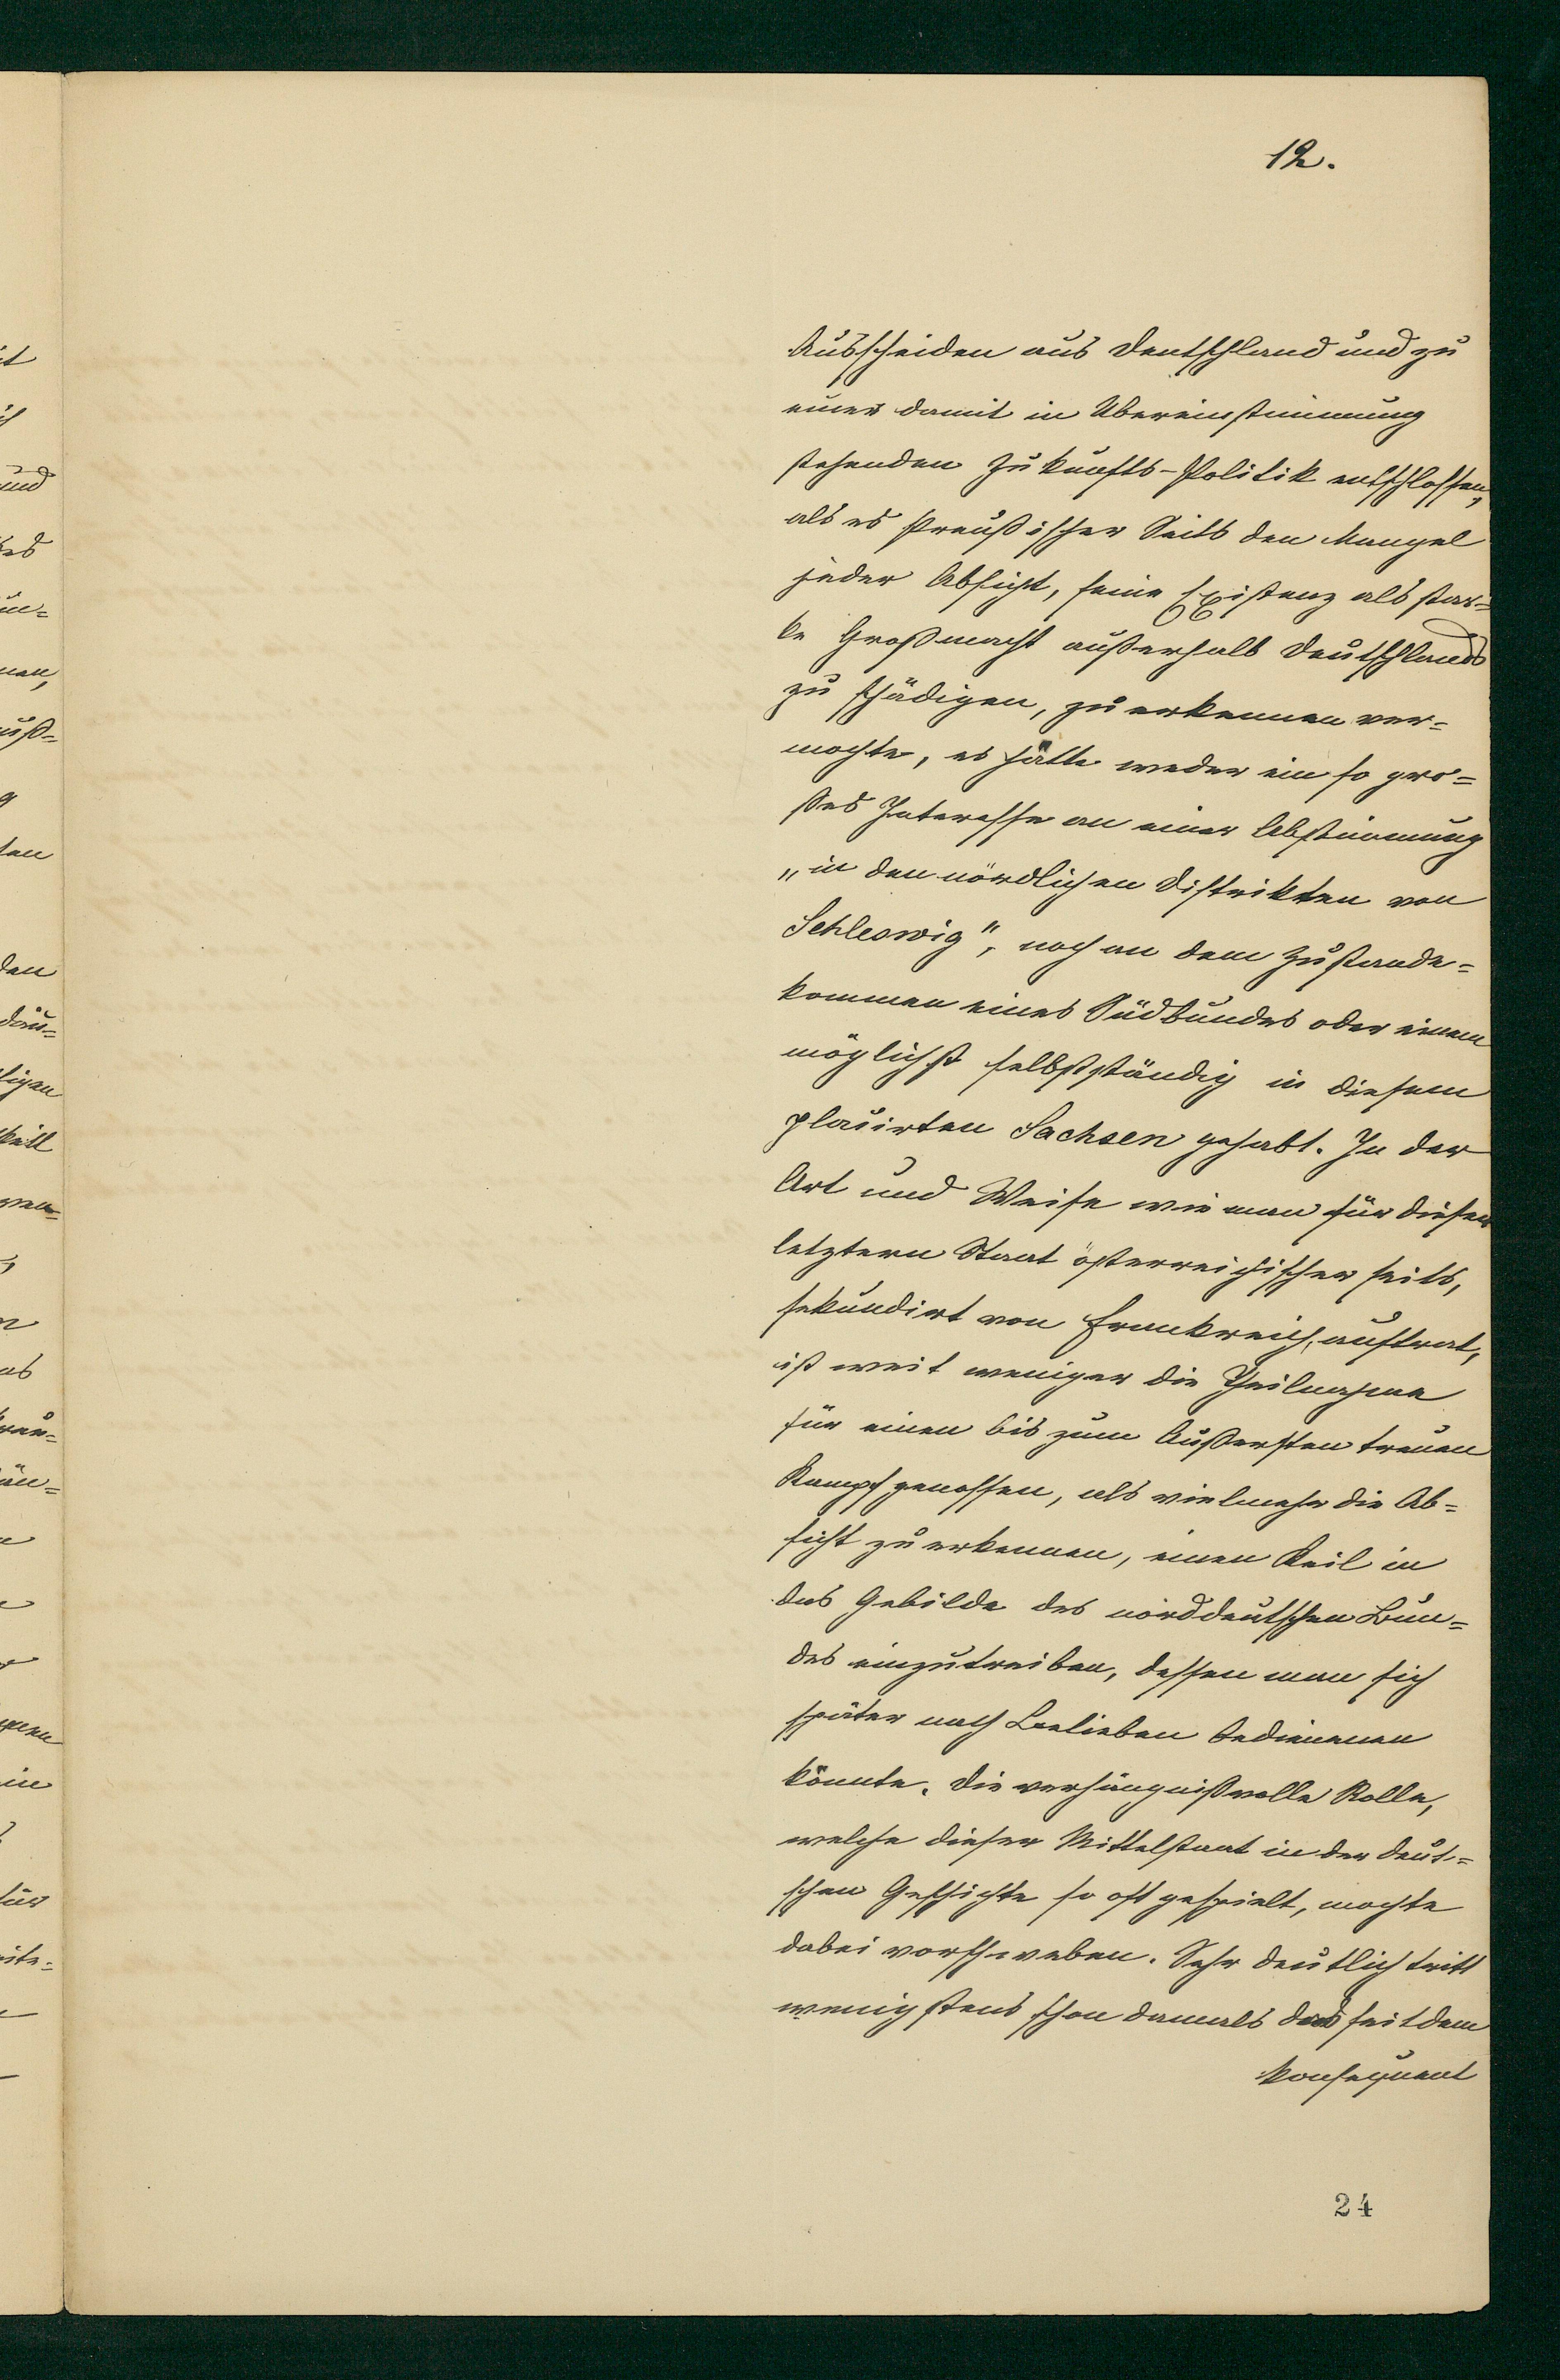 12.
Ausscheiden aus Deutschland und zu
einer damit in Übereinstimmung
stehenden Zukunfts-Politik entschlossen,
als es preußischer Seits den Mangel
jeder Absicht, seine Existenz als star=
ke Großmacht außerhalb Deutschlands
zu schädigen, zu erkennen ver=
mochte, es hätte weder ein so gro=
ßes Interesse an einer Abstimmung
„in den nördlichen Distrikten von
Schleswig", noch an dem Zustande=
kommen eines Südbundes oder einem
möglichst selbstständig in diesem
plaцirten Sachsen gehabt. In der
Art und Weise wie man für diesen
letztern Staat österreichischer seits,
sekundirt von Frankreich, auftrat,
ist weit weniger die Theilnahme
für einen bis zum Äußersten treuen
Kampfgenossen, als vielmehr die Ab=
sicht zu erkennen, einen Keil in
das Gebilde des norddeutschen Bun=
des einzutreiben, dessen man sich
später nach Belieben bedienen
könnte. Die verhängnißvolle Rolle,
welche dieser Mittelstaat in der deut=
schen Geschichte so oft gespielt, mochte
dabei vorschweben. Sehr deutlich tritt
wenigstens schon damals das seitdem
konsequent
24